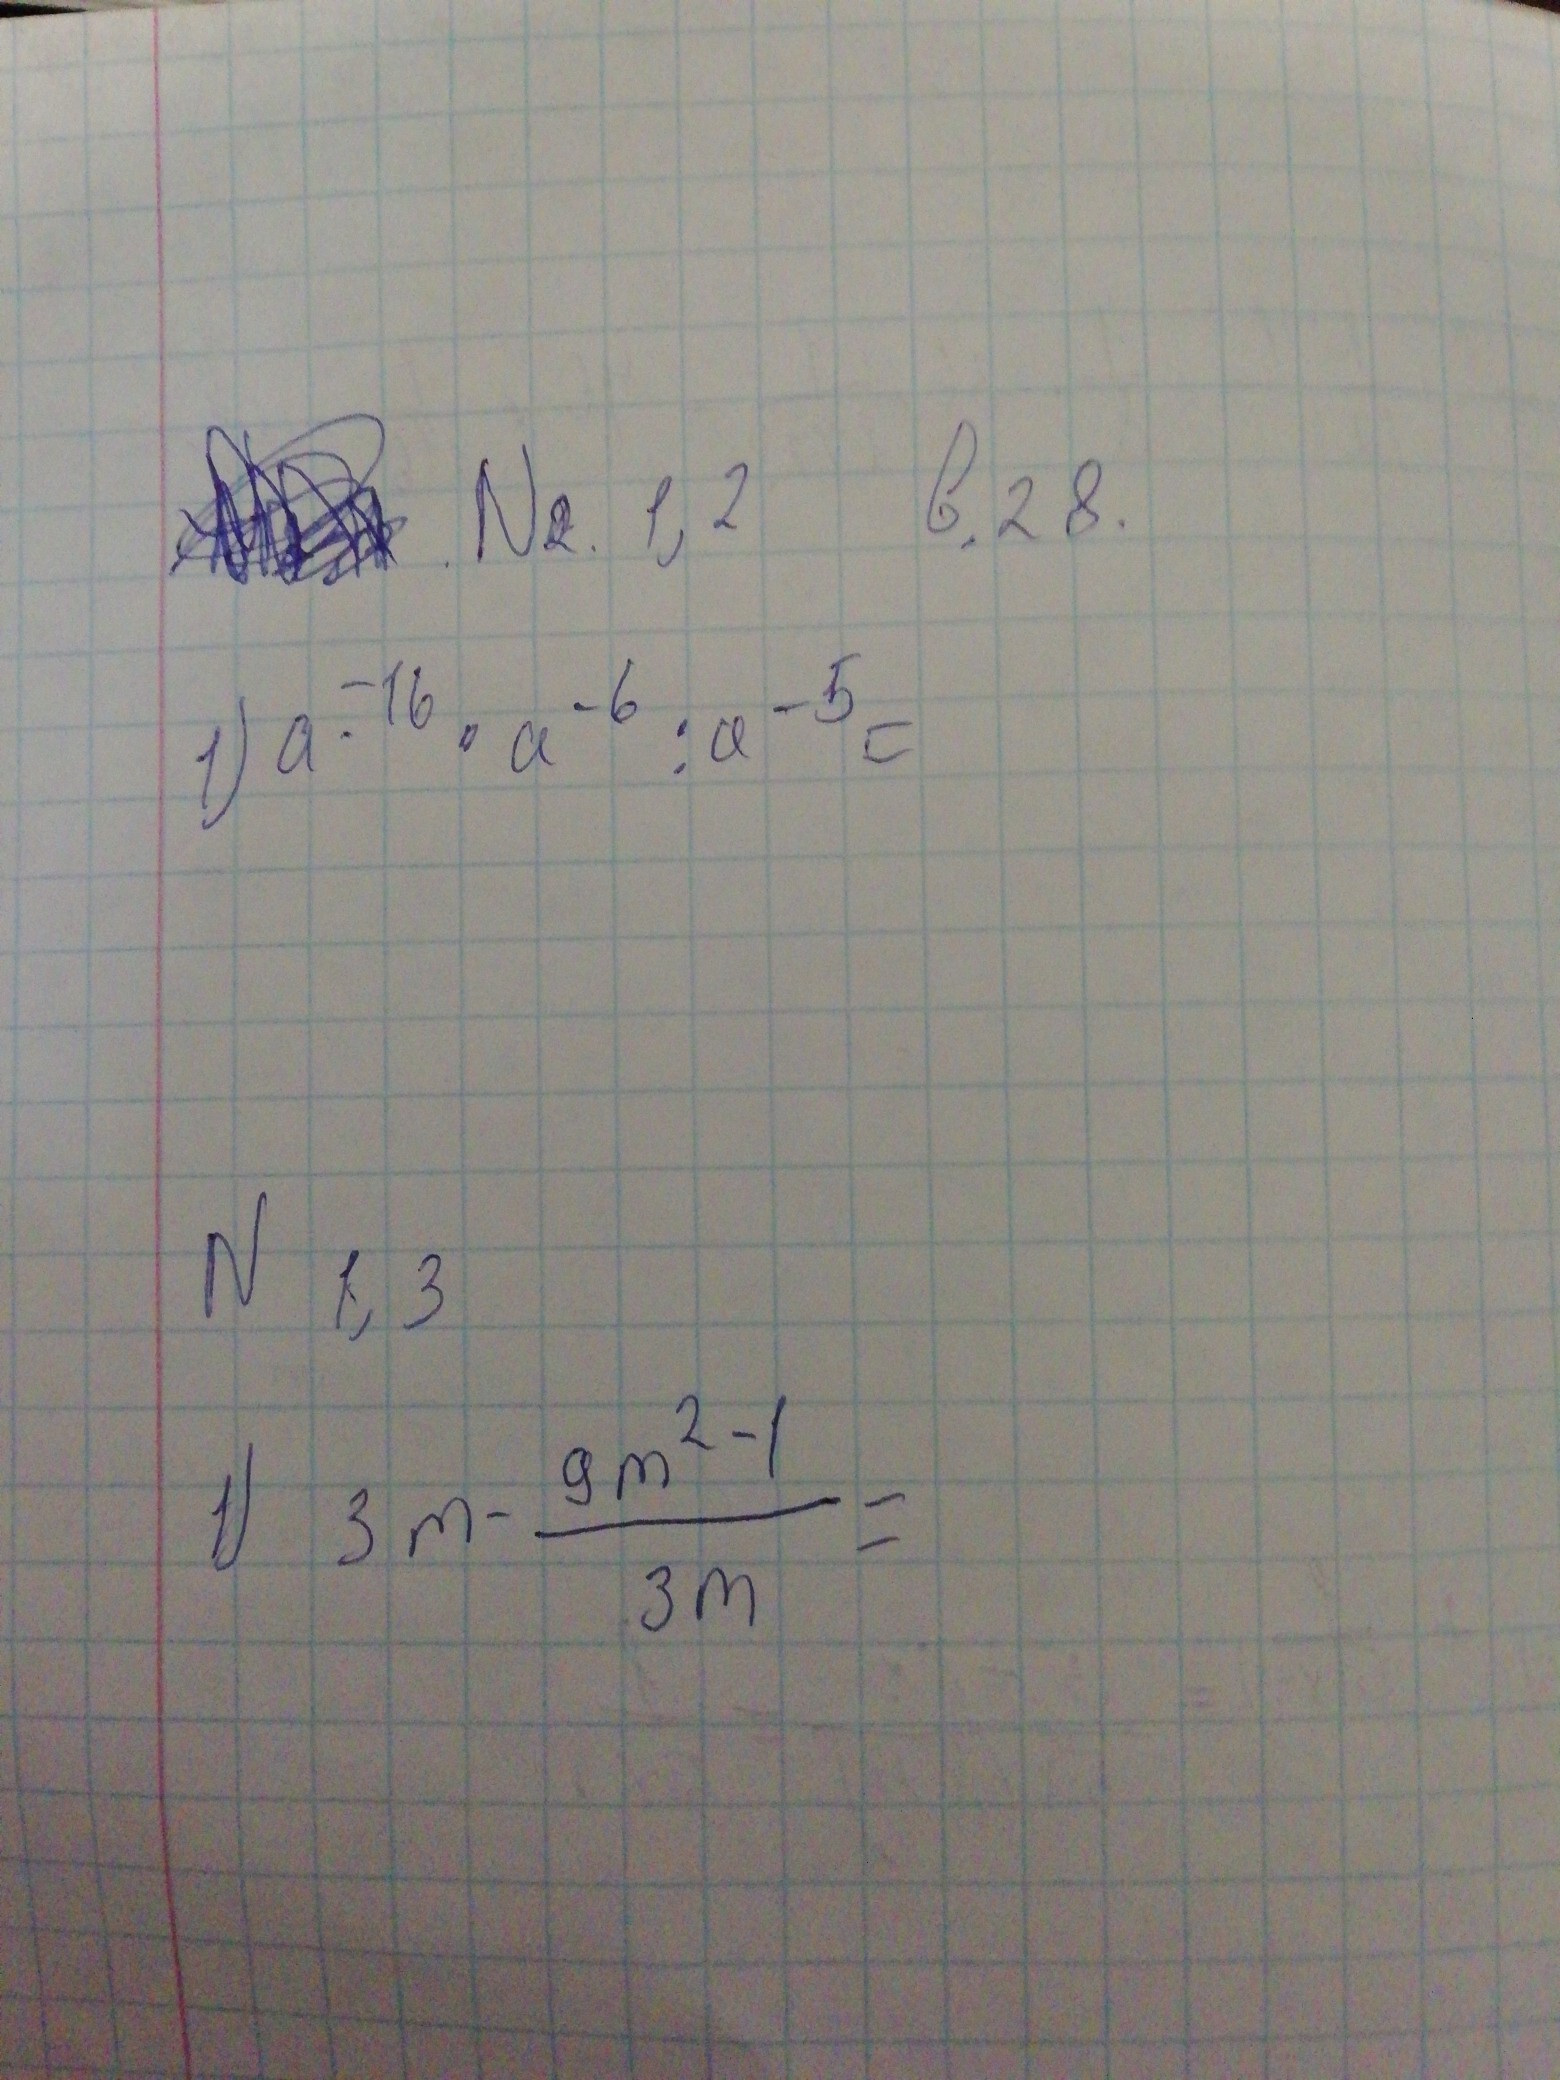 №. 1,2 в.28.
1) a^-16 · a^-6 : a^-5 =
N 1,3
1) 3m - (9m^2-1)/(3m) =